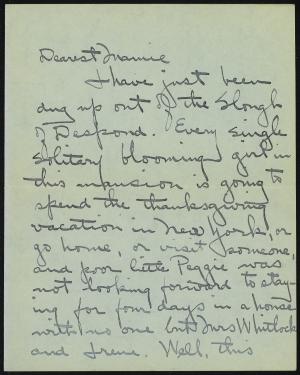 Dearest Mamie
I have just been
dug up out of the Slough
of Despond. Every single
solitary blooming girl in
this mansion is going to
spend the thanksgiving
vacation in New York, or
go home, or visit someone,
and poor little Peggie was
not looking forward to stay-
ing for four days in a house
with no one but Mrs Whitlock
and Irene. Well, this